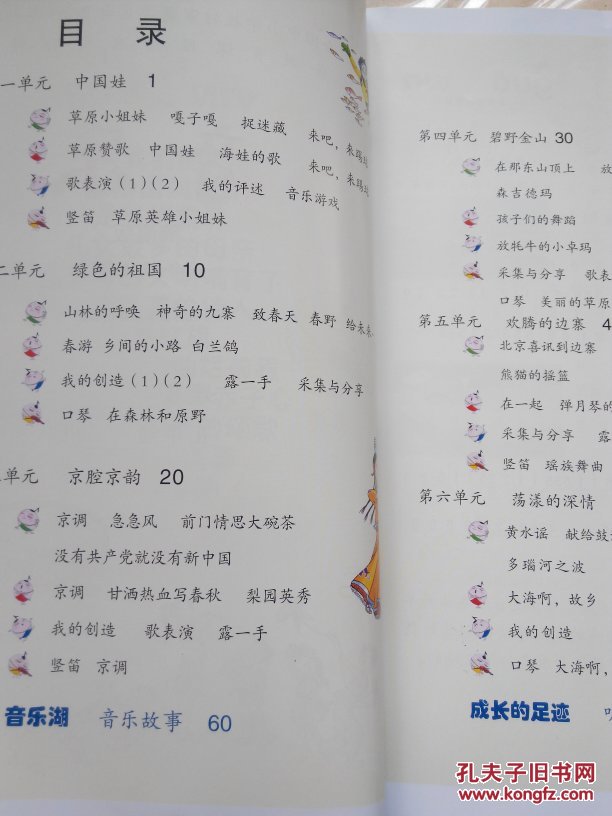 目 录
一单元 中国娃 1
草原小姐妹 嘎子嘎 捉迷藏 来吧，来踢球
草原赞歌 中国娃 海娃的歌 来吧，来踢球
歌表演（1）（2） 我的评述 音乐游戏
竖笛 草原英雄小姐妹
二单元 绿色的祖国 10
山林的呼唤 神奇的九寨 致春天 春野 给未来
春游 乡间的小路 白兰鸽
我的创造（1）（2） 露一手 采集与分享
口琴 在森林和原野
单元 京腔京韵 20
京调 急急风 前门情思大碗茶
没有共产党就没有新中国
京调 甘洒热血写春秋 梨园英秀
我的创造 歌表演 露一手
竖笛 京调
音乐湖 音乐故事 60
第四单元 碧野金山 30
在那东山顶上 放
森吉德玛
孩子们的舞蹈
放牦牛的小卓玛
采集与分享 歌表
口琴 美丽的草原
第五单元 欢腾的边寨 4
北京喜讯到边寨
熊猫的摇篮
在一起 弹月琴的
采集与分享 露
竖笛 瑶族舞曲
第六单元 荡漾的深情
黄水谣 献给鼓
多瑙河之波
大海啊，故乡
我的创造
口琴 大海啊，
成长的足迹
孔夫子旧书网
www.kongfz.com